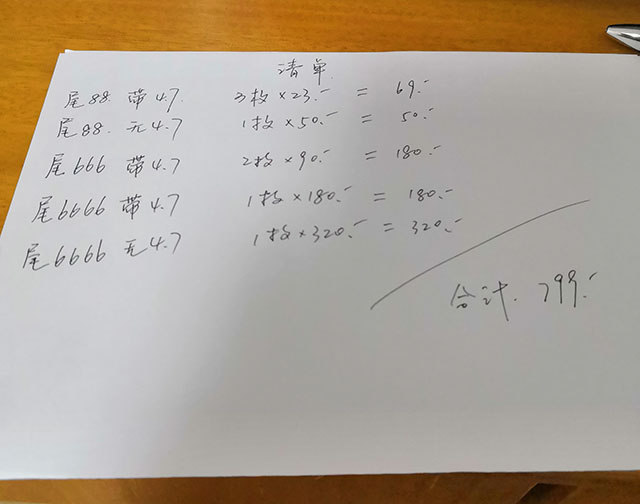 清单
尾88. 带4.7. 3枚×23.- = 69.-
尾88. 无4.7 1枚×50.- = 50.-
尾666 带4.7 2枚×90.- = 180.-
尾6666 带4.7 1枚×180.- = 180.-
尾6666 无4.7 1枚×320.- = 320.-
合计. 799.-